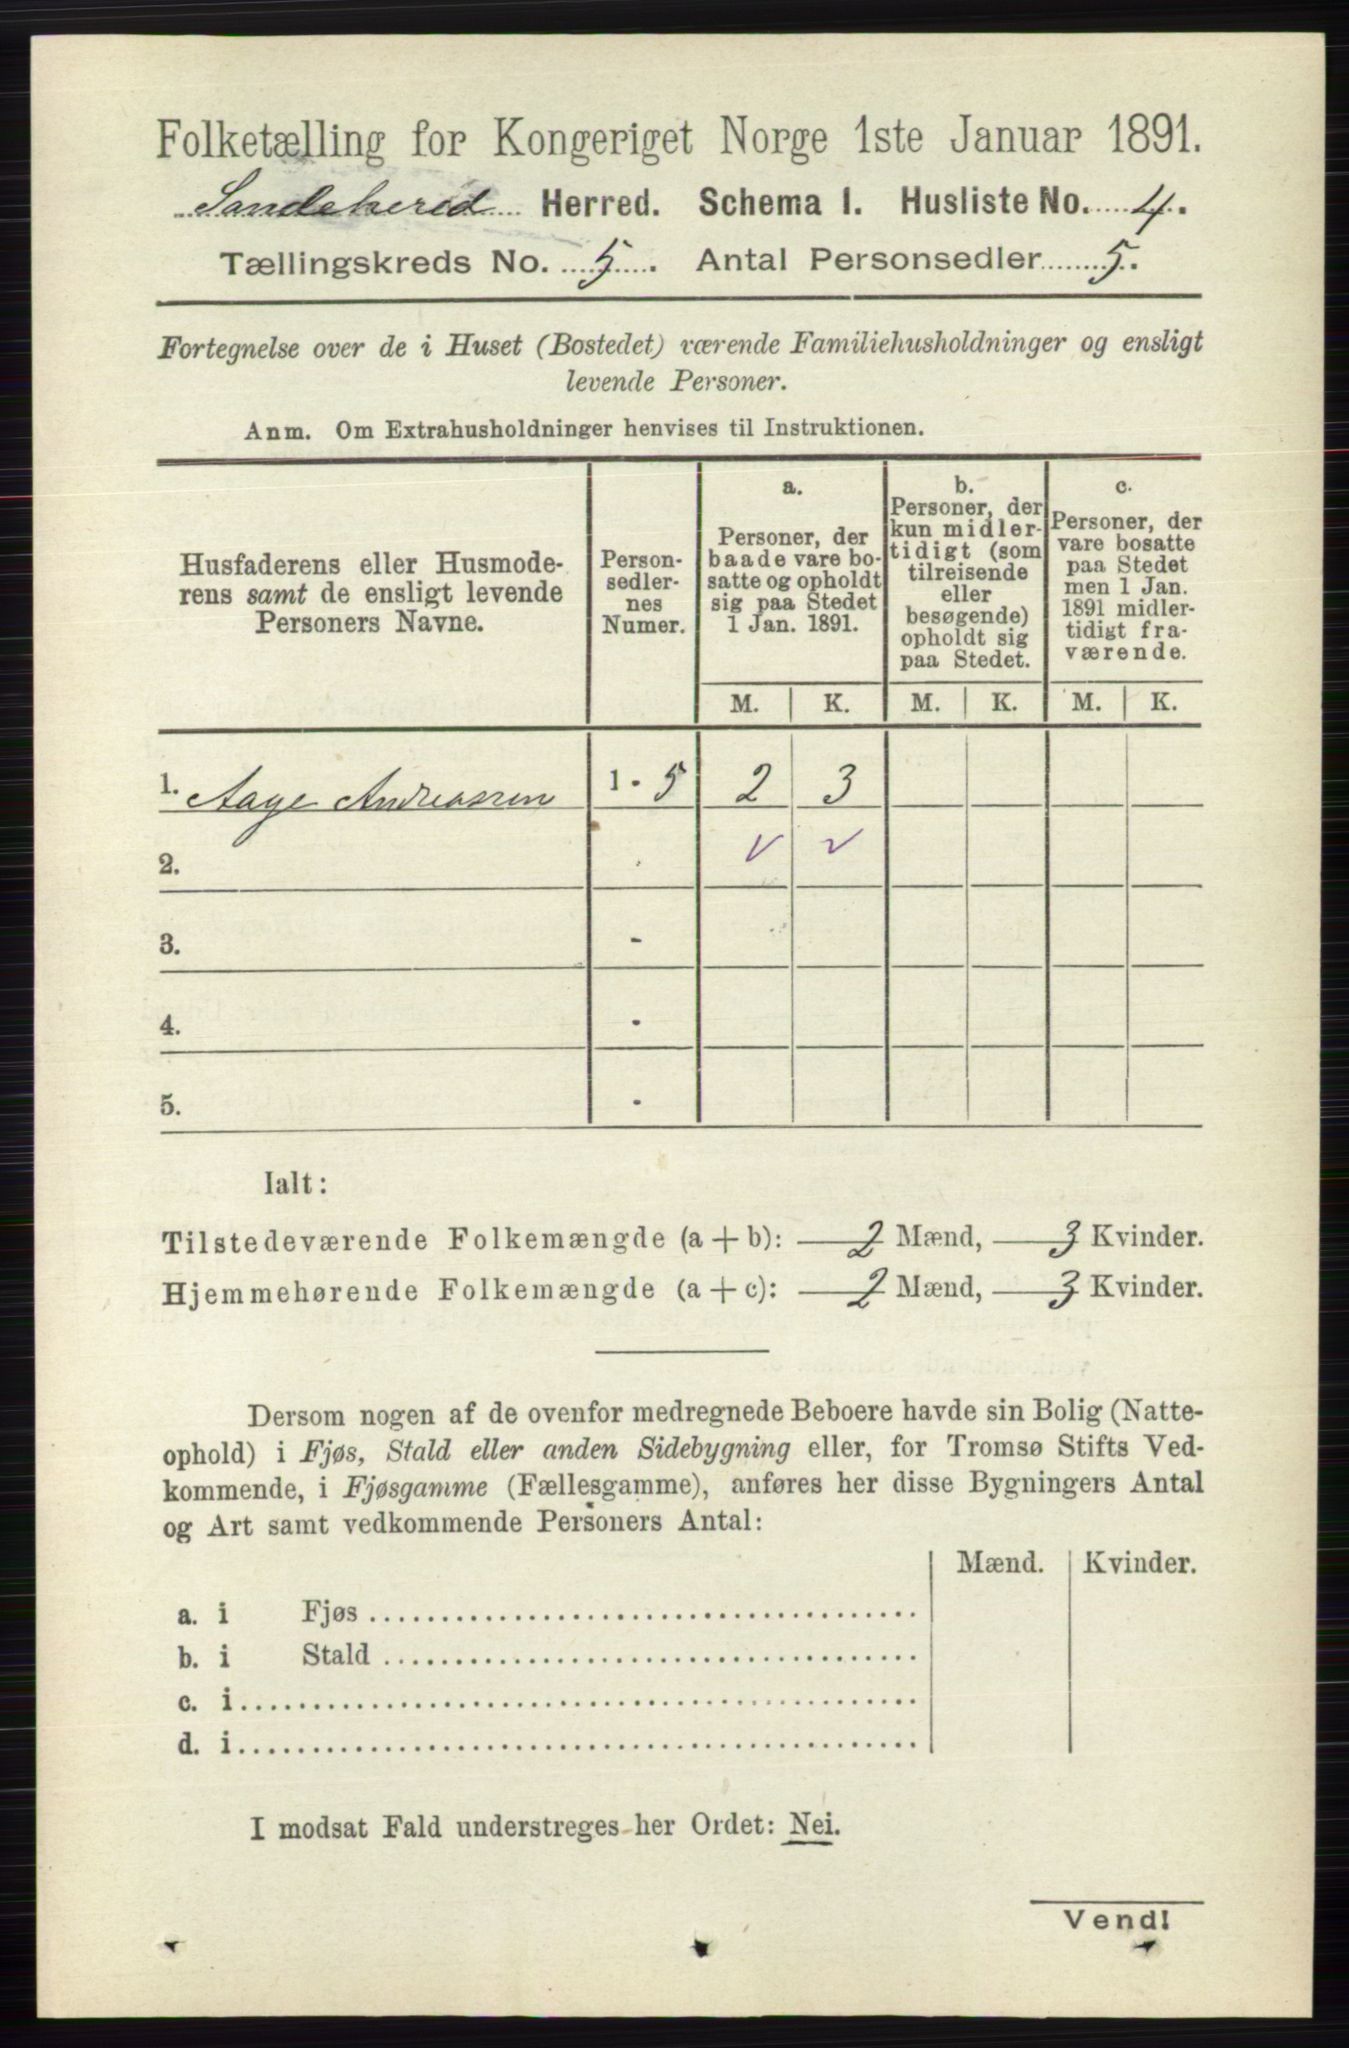 Folketælling for Kongeriget Norge 1ste Januar 1891.
Sandeherred Herred. Schema 1. Husliste No. 4.
Tællingskreds No. 5. Antal Personsedler 5.
Fortegnelse over de i Huset (Bostedet) værende Familiehusholdninger og ensligt
levende Personer.
Anm. Om Extrahusholdninger henvises til Instruktionen.
Husfaderens eller Husmode-
rens samt de ensligt levende
Personers Navne.
Person-
sedler-
nes
Numer.
a.
Personer, der
baade vare bo-
satte og opholdt
sig paa Stedet
1 Jan. 1891.
b.
Personer, der
kun midler-
tidigt (som
tilreisende
eller
besøgende)
opholdt sig
paa Stedet.
c.
Personer, der
vare bosatte
paa Stedet
men 1 Jan.
1891 midler-
tidigt fra-
værende.
M. K. M. K. M. K.
1. Aage Andreassen 1 - 5 2 3
2. - ✓ ✓
3. -
4. -
5. -
Ialt:
Tilstedeværende Folkemængde (a + b): 2 Mænd, 3 Kvinder.
Hjemmehørende Folkemængde (a + c): 2 Mænd, 3 Kvinder.
Dersom nogen af de ovenfor medregnede Beboere havde sin Bolig (Natte-
ophold) i Fjøs, Stald eller anden Sidebygning eller, for Tromsø Stifts Ved-
kommende, i Fjøsgamme (Fællesgamme), anføres her disse Bygningers Antal
og Art samt vedkommende Personers Antal:
Mænd. Kvinder.
a. i Fjøs
b. i Stald
c. i
d. i
I modsat Fald understreges her Ordet: Nei.
Vend!